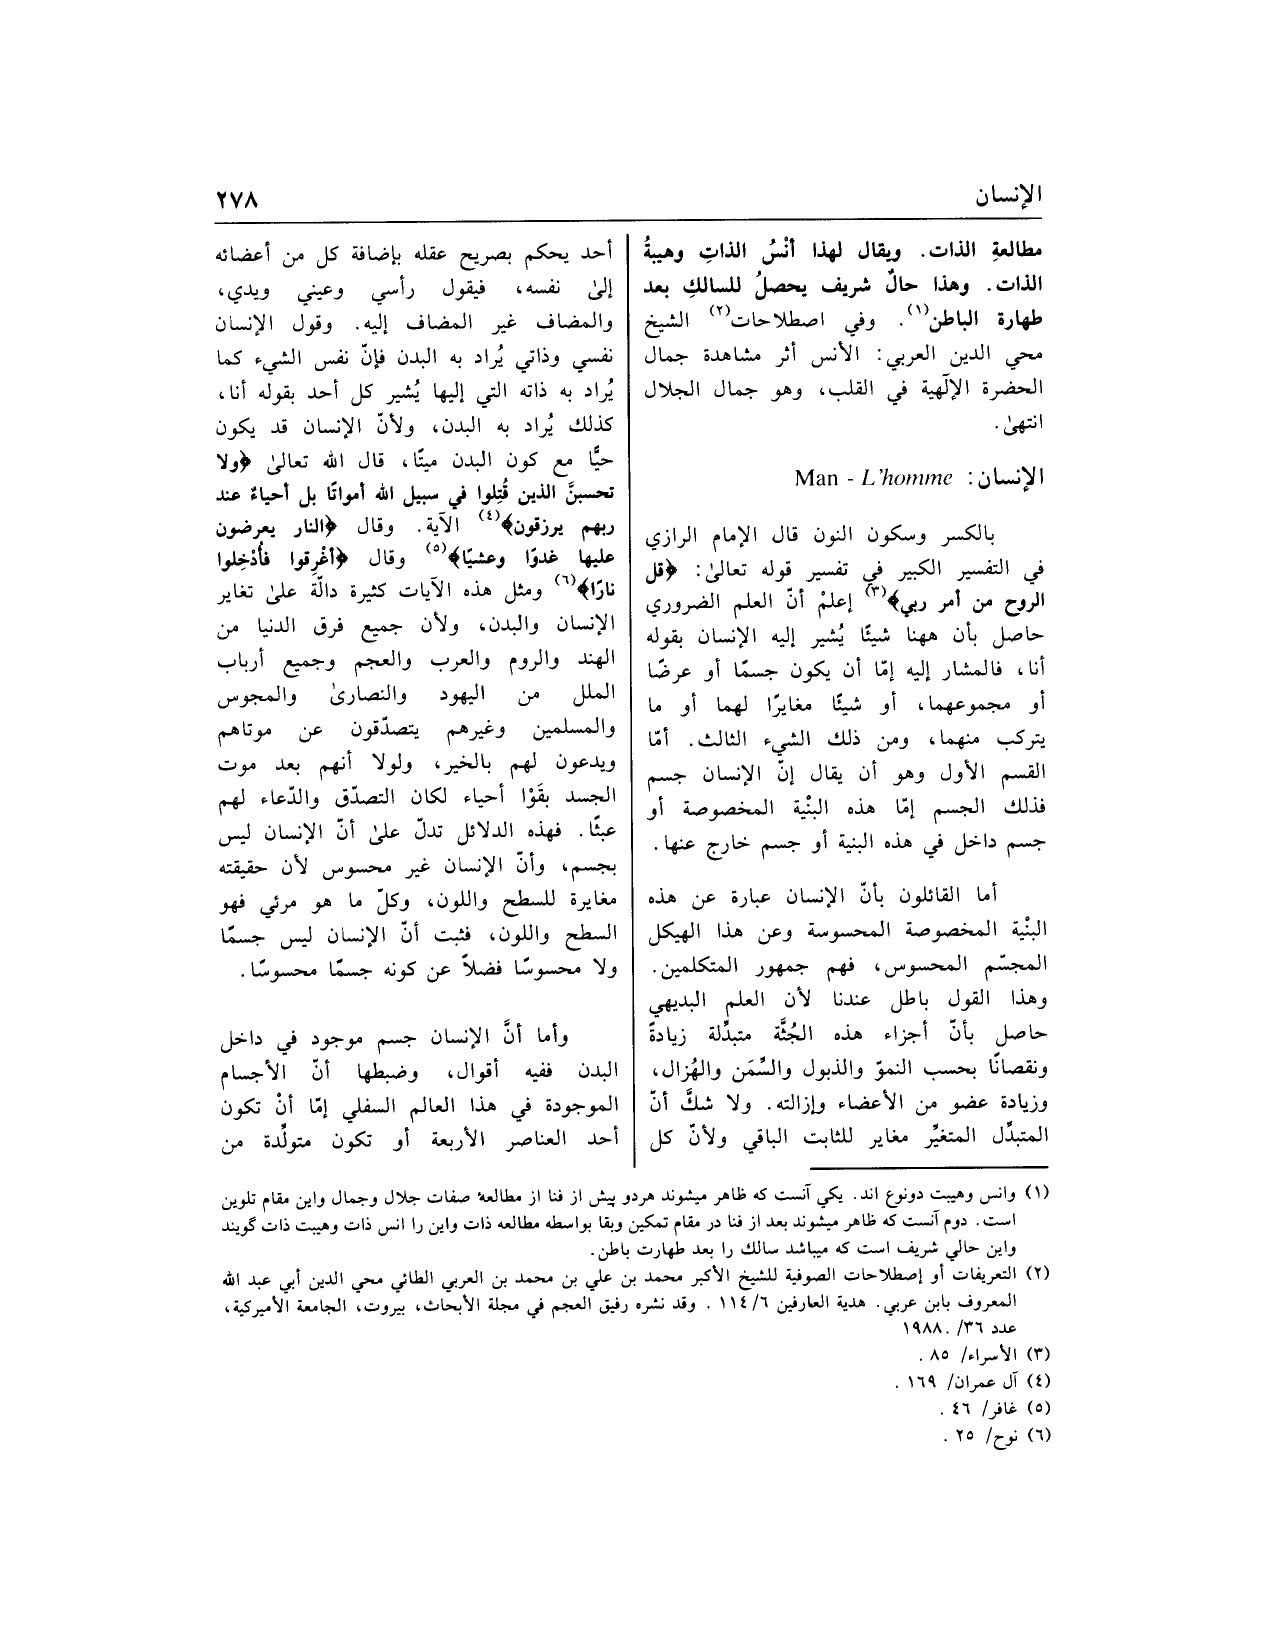 الإنسان
٢٧٨
مطالعةِ الذات. ويقال لهذا أنْسُ الذاتِ وهيبةُ
الذات. وهذا حالٌ شريف يحصلُ للسالكِ بعد
طهارة الباطن(١). وفي اصطلاحات(٢) الشيخ
محي الدين العربي: الأنس أثر مشاهدة جمال
الحضرة الإلٓهية في القلب، وهو جمال الجلال
انتهىٰ.
الإنسان: Man - L'homme
بالكسر وسكون النون قال الإمام الرازي
في التفسير الكبير في تفسير قوله تعالىٰ: ﴿قل
الروح من أمر ربي﴾(٣) إعلمْ أنّ العلم الضروري
حاصل بأن ههنا شيئًا يُشير إليه الإنسان بقوله
أنا، فالمشار إليه إمّا أن يكون جسمًا أو عرضًا
أو مجموعهما، أو شيئًا مغايرًا لهما أو ما
يتركب منهما، ومن ذلك الشيء الثالث. أمّا
القسم الأول وهو أن يقال إنّ الإنسان جسم
فذلك الجسم إمّا هذه البنْية المخصوصة أو
جسم داخل في هذه البنية أو جسم خارج عنها.
أما القائلون بأنّ الإنسان عبارة عن هذه
البنْية المخصوصة المحسوسة وعن هذا الهيكل
المجسّم المحسوس، فهم جمهور المتكلمين.
وهذا القول باطل عندنا لأن العلم البديهي
حاصل بأنّ أجزاء هذه الجُثَّة متبدِّلة زيادةً
ونقصانًا بحسب النموّ والذبول والسِّمَن والهُزال،
وزيادة عضو من الأعضاء وإزالته. ولا شكَّ أنّ
المتبدِّل المتغيِّر مغاير للثابت الباقي ولأنّ كل
أحد يحكم بصريح عقله بإضافة كل من أعضائه
إلىٰ نفسه، فيقول رأسي وعيني ويدي،
والمضاف غير المضاف إليه. وقول الإنسان
نفسي وذاتي يُراد به البدن فإنّ نفس الشيء كما
يُراد به ذاته التي إليها يُشير كل أحد بقوله أنا،
كذلك يُراد به البدن، ولأنّ الإنسان قد يكون
حيًّا مع كون البدن ميتًا، قال الله تعالىٰ ﴿ولا
تحسبنَّ الذين قُتِلوا في سبيل الله أمواتًا بل أحياءٌ عند
ربهم يرزقون﴾(٤) الآية. وقال ﴿النار يعرضون
عليها غدوًا وعشيًا﴾(٥) وقال ﴿أغْرِقوا فأُدْخِلوا
نارًا﴾(٦) ومثل هذه الآيات كثيرة دالّة علىٰ تغاير
الإنسان والبدن، ولأن جميع فرق الدنيا من
الهند والروم والعرب والعجم وجميع أرباب
الملل من اليهود والنصارىٰ والمجوس
والمسلمين وغيرهم يتصدّقون عن موتاهم
ويدعون لهم بالخير، ولولا أنهم بعد موت
الجسد بقَوْا أحياء لكان التصدّق والدّعاء لهم
عبثًا. فهذه الدلائل تدلّ علىٰ أنّ الإنسان ليس
بجسم، وأنّ الإنسان غير محسوس لأن حقيقته
مغايرة للسطح واللون، وكلّ ما هو مرئي فهو
السطح واللون، فثبت أنّ الإنسان ليس جسمًا
ولا محسوسًا فضلاً عن كونه جسمًا محسوسًا.
وأما أنَّ الإنسان جسم موجود في داخل
البدن ففيه أقوال، وضبطها أنّ الأجسام
الموجودة في هذا العالم السفلي إمّا أنْ تكون
أحد العناصر الأربعة أو تكون متولِّدة من
(١) وانس وهيبت دونوع اند. يكي آنست كه ظاهر ميشوند هردو پيش از فنا از مطالعهٔ صفات جلال وجمال واين مقام تلوين
است. دوم آنست كه ظاهر ميشوند بعد از فنا در مقام تمكين وبقا بواسطه مطالعه ذات واين را انس ذات وهيبت ذات گويند
واين حالي شريف است كه ميباشد سالك را بعد طهارت باطن.
(٢) التعريفات أو إصطلاحات الصوفية للشيخ الأكبر محمد بن علي بن محمد بن العربي الطائي محي الدين أبي عبد الله
المعروف بابن عربي. هدية العارفين ٦/ ١١٤. وقد نشره رفيق العجم في مجلة الأبحاث، بيروت، الجامعة الأميركية،
عدد ٣٦/ .١٩٨٨
(٣) الأسراء/ ٨٥.
(٤) آل عمران/ ١٦٩.
(٥) غافر/ ٤٦.
(٦) نوح/ ٢٥.